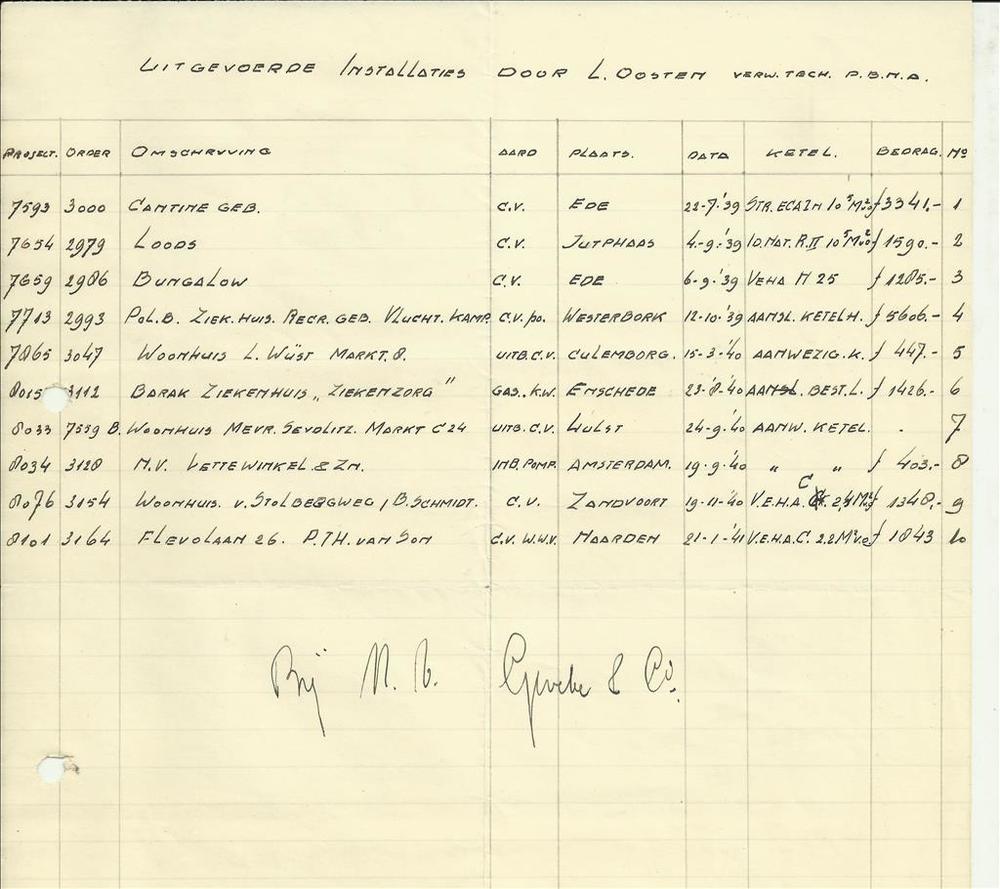 UITGEVOERDE INSTALLATIES DOOR L. OOSTEN VERW. TECH. P.B.N.A.
PROJECT. ORDER OMSCHRYVING AARD PLAATS. DATA KETEL. BEDRAG. No
7593 3000 CANTINE GEB. C.V. EDE 22-7-'39 STR. ECA IN 10 5 M² vo f 3341.- 1
7654 2979 LOODS C.V. JUTPHAAS 4-9-'39 ID. NAT. R. II 10 5 M² vo f 1590.- 2
7659 2986 BUNGALOW C.V. EDE 6-9-'39 VEHA N 25 f 1285.- 3
7713 2993 POL. B. ZIEK. HUIS. RECR. GEB. VLUCHT. KAMP. C.V. po. WESTERBORK 12-10-'39 AANSL. KETEL H. f 5606.- 4
7865 3047 WOONHUIS L. WÜST MARKT. 8. UITB. C.V. CULEMBORG. 15-3-'40 AANWEZIG. K. f 447.- 5
8015 3112 BARAK ZIEKENHUIS „ZIEKENZORG" GAS. K.W. ENSCHEDE 23-8-'40 AANSL. BEST. L. f 1426.- 6
8033 7559 B. WOONHUIS MEVR. SEVDLITZ. MARKT C 24 UITB. C.V. HULST 24-9-'40 AANW. KETEL. . 7
8034 3128 N.V. LETTEWINKEL & ZN. INB. POMP. AMSTERDAM. 19-9-'40 „ „ f 403.- 8
8076 3154 WOONHUIS. v. STOLBERGWEG / B. SCHMIDT. C.V. ZANDVOORT 19-11-'40 V.E.H.A. C 2,4 M² f 1348.- 9
8101 3164 FLEVOLAAN 26. P.TH. VAN SON C.V. W.W.V. NAARDEN 21-1-'41 V.E.H.A. C. 2.2 M² v.o. f 1843 10
Bij N. V. & Co.